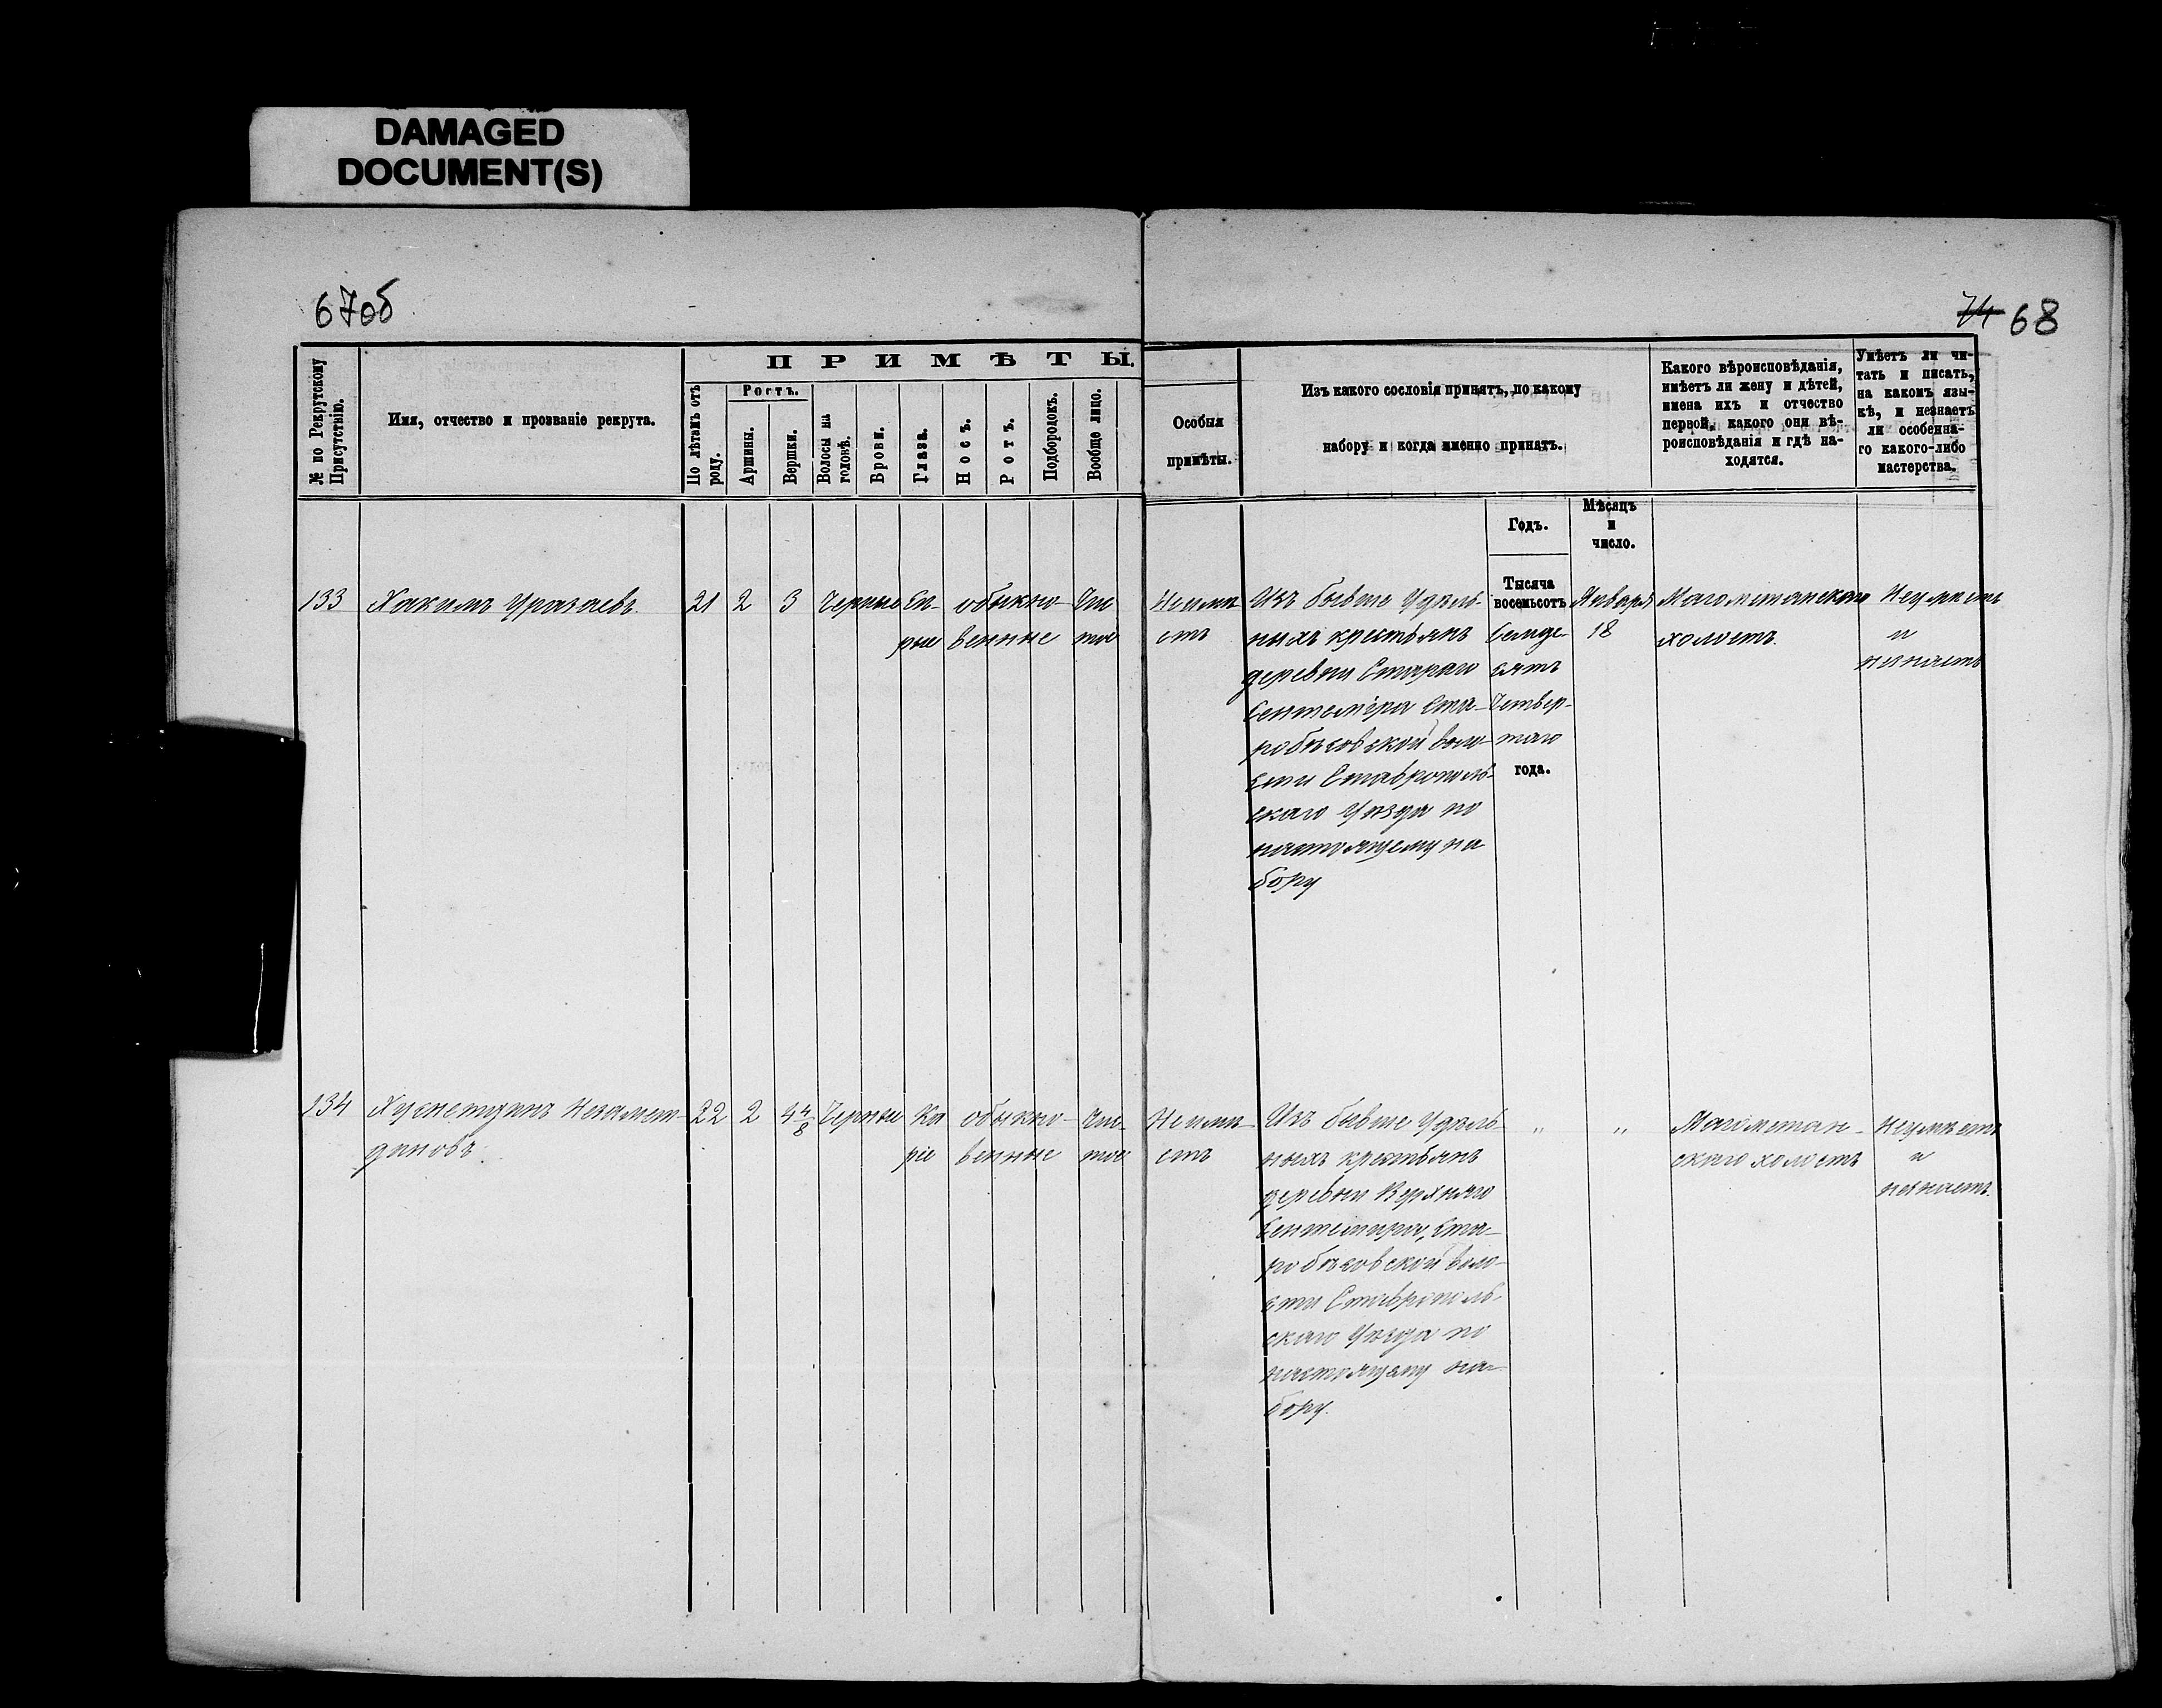 DAMAGED
DOCUMENT(S)
67об
74 68
№ по Рекрутскому
Присутствію.
Имя, отчество и прозваніе рекрута.
ПРИМѢТЫ.
По лѣтамъ отъ
роду.
Ростъ.
Аршины.
Вершки.
Волосы на
головѣ.
Брови.
Глаза.
Носъ.
Ротъ.
Подбородокъ.
Вообще лицо.
Особыя
примѣты.
Изъ какого сословія принятъ, по какому
набору и когда именно принятъ.
Какого вѣроисповѣданія,
имѣетъ ли жену и дѣтей,
имена ихъ и отчество
первой, какого они вѣ-
роисповѣданія и гдѣ на-
ходятся.
Умѣетъ ли чи-
тать и писать,
на какомъ язы-
кѣ, и незнаетъ
ли особенна-
го какого-либо
мастерства.
Годъ.
Мѣсяцъ
и
число.
133
Хакимъ Уразаевъ
21
2
3
Черные
Сѣ-
рые
обыкно-
венные
Чис
тое
Неимѣ
етъ
Изъ бывше Удѣль-
ныхъ крестьянъ
деревни Стараго
Сентемира Ста-
робѣсовской воло-
сти Ставрополь-
скаго Уѣзда по
настоящему на
бору
Тысяча
восемьсотъ
Семде-
сятъ
Четвер-
таго
года.
Января
18
Магометанскаго
холостъ.
Неумѣетъ
и
незнаетъ
134
Хуснетдинъ Незамет-
диновъ
22
2
4 4/8
Черные
Ка
ріе
обыкно-
венные
Чис-
тое
Неимѣ-
етъ
Изъ бывше Удѣль-
ныхъ крестьянъ
деревни Верхняго
Сентемира, Ста-
робѣсовской воло-
сти Ставрополь-
скаго Уѣзда по
настоящему на-
бору.
"
"
Магометан-
скаго холостъ
Неумѣетъ
и
незнаетъ.